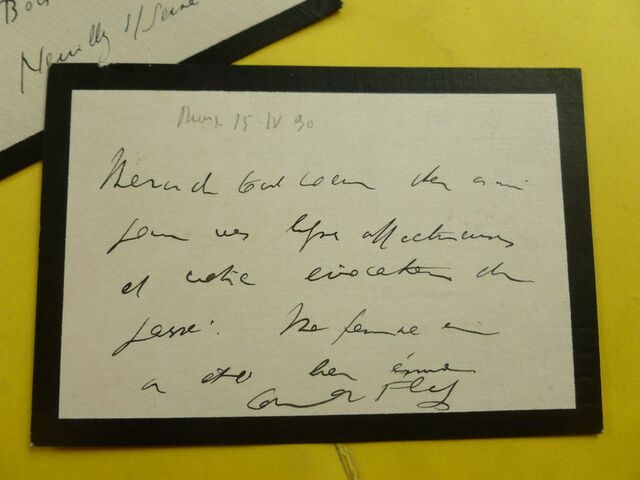 Bois
Neuilly s/Seine
15 IV 30
Merci de tout coeur cher ami
pour vos lignes affectueuses
et votre évocation du
passé. Ma femme
a été bien émue